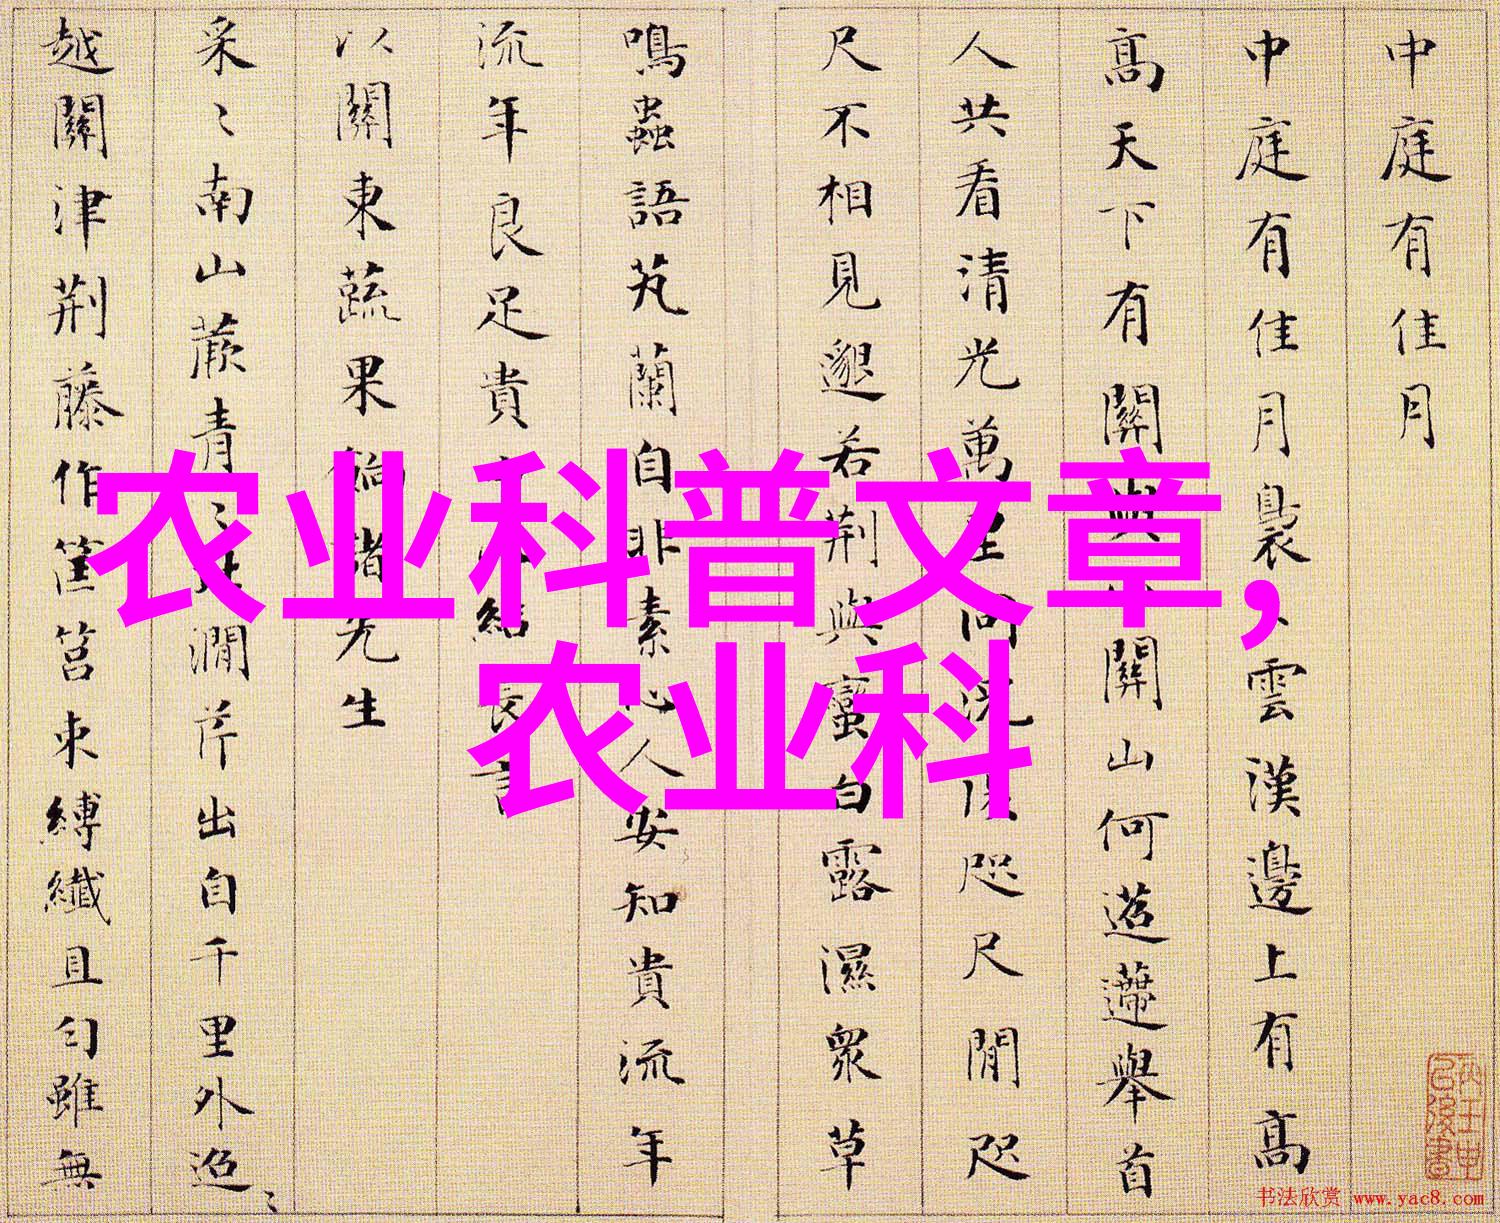 中庭有佳月
中庭有佳月裊雲漢邊上有高
高天下有關關山何迢遰舉首
人共看清光萬里同況復咫尺閒咫
尺不相見邈若荆與蠻白露濕衆草
鳴蟲語芄蘭自非素心人安知貴流年
流年良足貴結長言
以關東蔬果餉諸先生
采〻南山蕨青〻澗芹出自千里外迢〻
越關津荆藤作筐筥束縛纖且勻雖無
农业科普文章,
农业科
书法欣赏 www.yac8.com